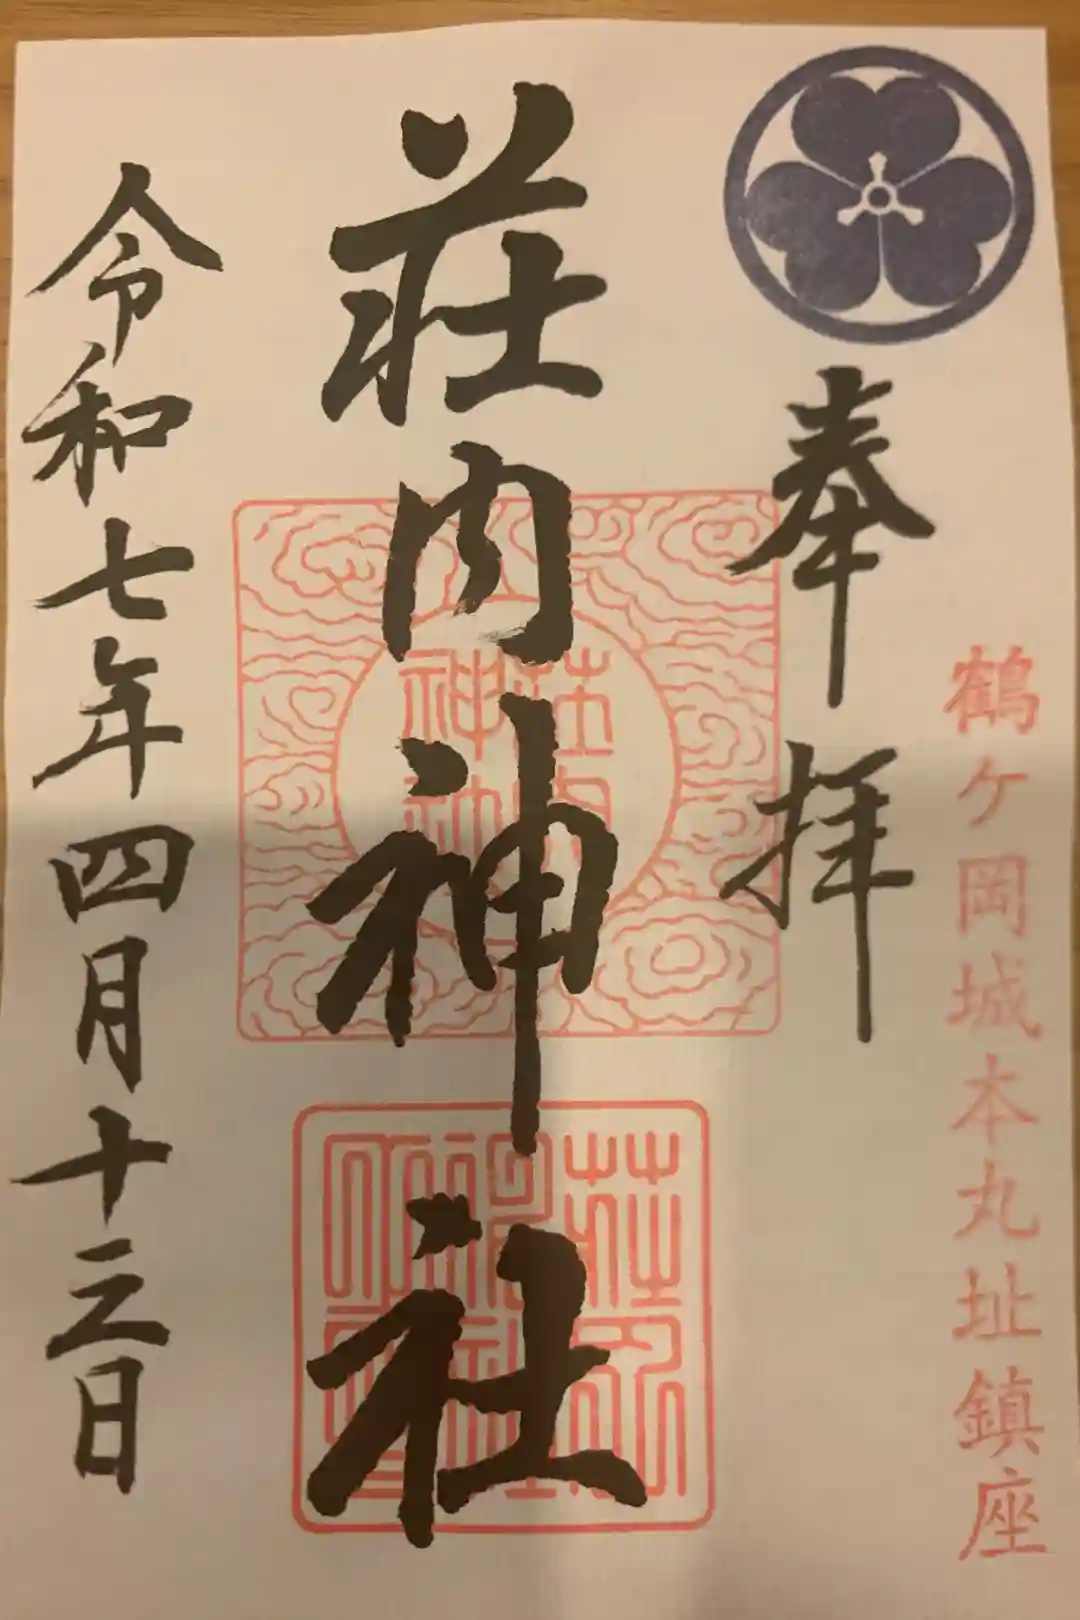 奉拝
鶴ヶ岡城本丸址鎮座
荘内神社
荘内
神社
令和七年四月十三日